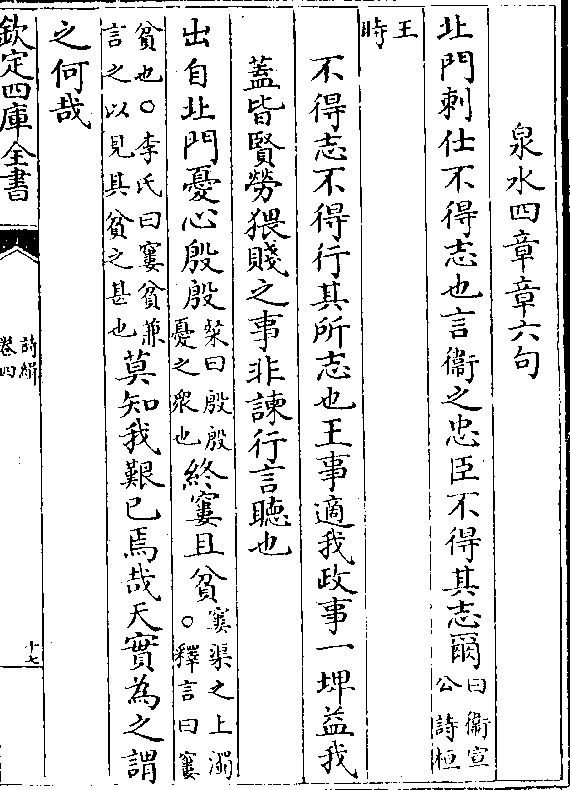 泉水四章章六句
北門刺仕不得志也言衞之忠臣不得其志爾曰衞宣公詩桓
王時
不得志不得行其所志也王事適我政事一埤益我
蓋皆賢勞猥賤之事非諫行言聽也
出自北門憂心殷殷粲曰殷殷憂之衆也終窶且貧窶渠之上濁○釋言曰窶
貧也○李氏曰窶貧兼言之以見其貧之甚也莫知我艱已焉哉天實為之謂
之何哉
欽定四庫全書
詩緝
卷四
十七